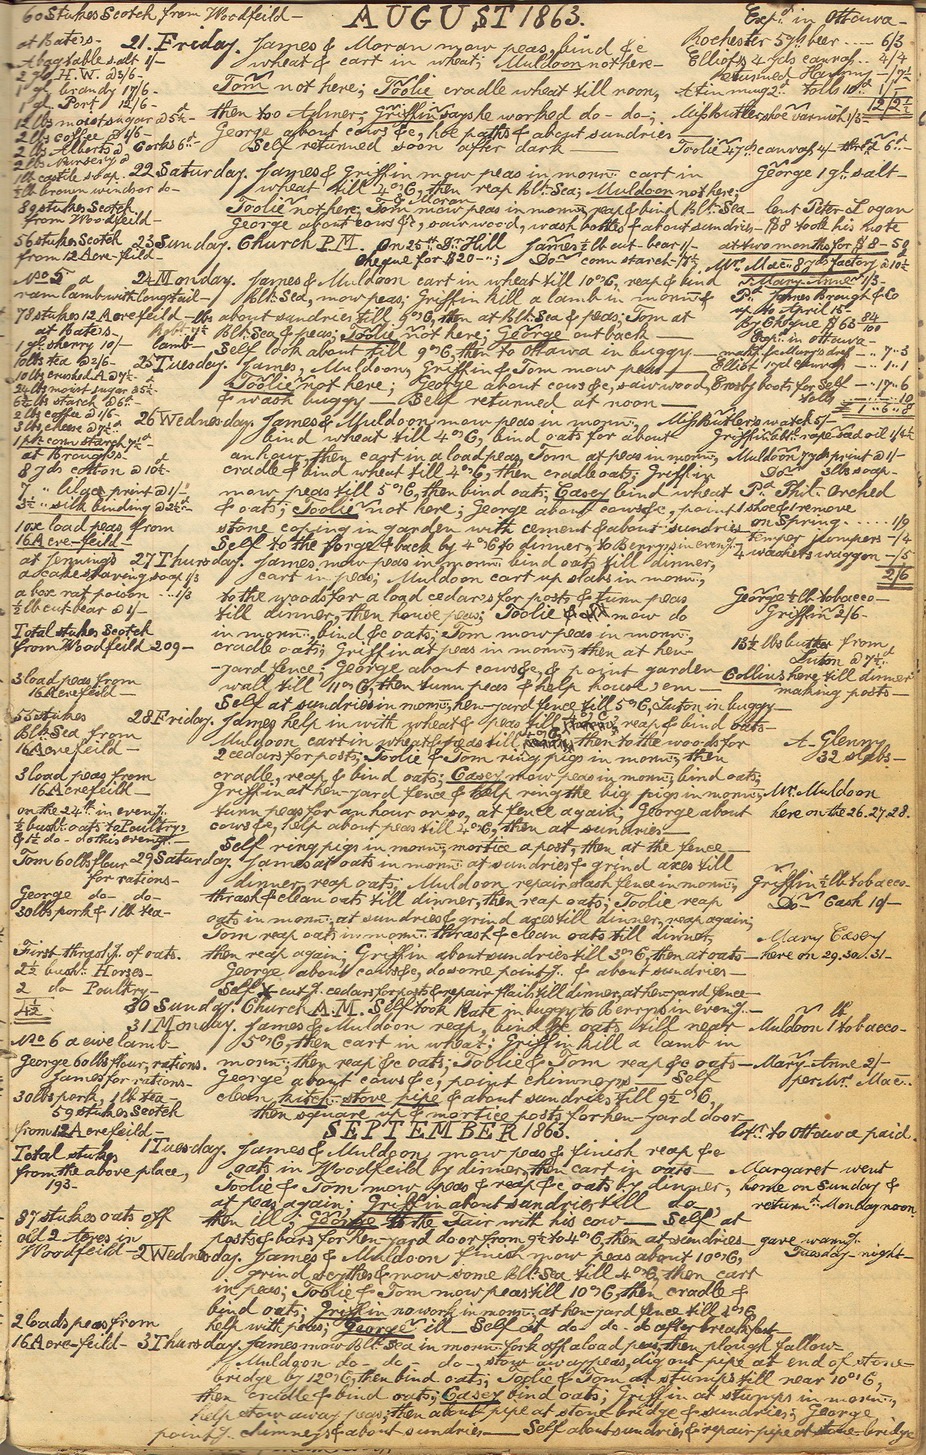 AUGUST 1863.
60 Stukes Scotch from Woodfeild -
at Bates -
A bag table salt 1/-
2 gs. H. W. @ 3/6 -
1 gn. brandy 17/6 -
1 gn. Port 12/6 -
12 lbs moist sugar @ 5½d
2 lbs coffee @ 1/6 -
Corks 6d
1 lb castle soap -
½ lb brown windsor do -
89 stukes Scotch
from Woodfeild -
56 stukes Scotch
from 12 Acre feild -
No 5 a
ram lamb with long tail -
78 stukes 12 Acre feild -
at Bates -
1 gn. sherry 10/-
10 lbs tea @ 2/6 -
10 lbs crushed @ 7½
24 lbs moist sugar @ 5½d
6½ lbs starch @ 6d -
2 lbs coffee @ 1/6 -
3 lbs cheese @ 7½d -
1 pk corn starch 7½d
at Broughs -
8 yds cotton @ 10½
7 " lilac print @ 1/-
3½ " silk binding @ 2½d -
10x load peas from
16 Acre feild -
at Jennings
a cake shaving soap 1/3
a box rat poison .. 1/3
½ lb cut bear @ 1/-
Total stukes Scotch
from Woodfeild 209 -
3 load peas from
16 Acre feild -
55 stukes
Blk Sea from
16 Acre feild -
3 load peas from
16 Acre feild -
on the 24th in eveng.
½ bush. oats to Poultry
& 1½ do - do this eveng. -
Tom 60 lbs flour
for rations -
George do - do -
30 lbs pork & 1 lb tea -
First thrashg. of oats.
2½ bush. Horses -
2 do Poultry -
4½
No 6 a ewe lamb -
George 60 lbs flour, rations.
James for rations -
30 lbs pork, 1 lb tea -
59 stukes Scotch
from 12 Acre feild -
Total stukes
from the above place,
193 -
37 stukes oats off
old 2 Acres in
Woodfeild -
2 loads peas from
16 Acre feild -
21. Friday. James & Moran mow peas, bind &c
wheat & cart in wheat; Muldoon not here -
Tom not here; Toolie cradle wheat till noon,
then to Aylmer; Griffin says he worked do - do -;
George about cows &c, hoe paths & about sundries -
Self returned soon after dark -
22 Saturday. James & Griffin mow peas in mornn. cart in
wheat till 4 o'C, then reap Blk. Sea; Muldoon not here;
Toolie not here; Tom & Moran mow peas in mornn. reap & bind Blk. Sea -
George about cows &c, saw wood, wash bottles & about sundries -
23 Sunday. Church P.M. On 25th Dr Hill James ½ lb cut bear 1/-
cheque for $20 - "; Do corn starch 7½,
24 Monday. James & Muldoon cart in wheat till 10 o'C, reap & bind
Blk. Sea, mow peas; Griffin kill a lamb in mornn. &
about sundries till 5 o'C, then at Blk. Sea & peas; Tom at
Blk. Sea & peas; Toolie not here; George out back -
Self look about till 9 o'C, then to Ottawa in buggy -
25 Tuesday. James, Muldoon, Griffin & Tom mow peas -
Toolie not here; George about cows &c, saw wood,
& wash buggy - Self returned at noon -
26 Wednesday. James & Muldoon mow peas in mornn.,
bind wheat till 4 o'C, bind oats for about
an hour, then cart in a load peas, Tom at peas in mornn.,
cradle & bind wheat till 4 o'C, then cradle oats; Griffin
mow peas till 5 o'C, then bind oats; Casey bind wheat
& oats; Toolie not here; George about cows &c, point
stone coping in garden with cement & about sundries
Self to the forge & back by 4 o'C to dinner, to Berrys in eveng.
27 Thursday. James mow peas in mornn. bind oats till dinner,
cart in peas; Muldoon cart up slabs in mornn.,
to the woods for a load cedars for posts & turn peas
till dinner, then house peas; Toolie mow do
in mornn., bind &c oats; Tom mow peas in mornn.,
cradle oats; Griffin at peas in mornn., then at hen-
-yard fence; George about cows &c, & point garden
wall till 11 o'C, then turn peas & help house 'em -
Self at sundries in mornn., hen-yard fence till 5 o'C, Luton in buggy -
28 Friday. James help in with wheat & peas till reap & bind oats -
Muldoon cart in wheat & peas till 4 o'C, then to the woods for
2 cedars for posts; Toolie & Tom ring pigs in mornn., then
cradle, reap & bind oats; Casey mow peas in mornn., bind oats;
Griffin at hen-yard fence & help ring the big pigs in mornn.,
turn peas for an hour or so, at fence again; George about
cows &c, help about peas till 4 o'C, then at sundries -
Self ring pigs in mornn., mortice a post, then at the fence -
29 Saturday. James at oats in mornn. at sundries & grind axes till
dinner, reap oats; Muldoon repair slash fence in mornn.,
thrash & clean oats till dinner, then reap oats; Toolie reap
oats in mornn. at sundries & grind axes till dinner, reap again;
Tom reap oats in mornn. thrash & clean oats till dinner,
then reap again; Griffin about sundries till 3 o'C, then at oats -
George about cows &c, do some pointg. & about sundries -
Self cut g. cedars for posts & repair flails till dinner, at hen-yard fence -
30 Sunday. Church A.M. Self took Kate in buggy to Berrys in eveng. -
31 Monday. James & Muldoon reap, bind &c oats till near
5 o'C, then cart in wheat; Griffin kill a lamb in
mornn.; then reap &c oats; Toolie & Tom reap &c oats -
George about cows &c, point chimneys - Self
clean kitch. stove pipe & about sundries till 9½ o'C,
then square up & mortice posts for hen-yard door -
SEPTEMBER 1863.
1 Tuesday. James & Muldoon mow peas & finish reap &c
oats in Woodfeild by dinner, then cart in oats -
Toolie & Tom mow peas & reap &c oats by dinner,
at peas again; Griffin about sundries till do
then ill; George to the Fair with his cow - Self at
posts & bars for hen-yard door from 9½ to 4 o'C, then at sundries -
2 Wednesday. James & Muldoon finish mow peas about 10 o'C,
grind scythes & mow some Blk. Sea till 4 o'C, then cart
in peas; Toolie & Tom mow peas till 10 o'C, then cradle &
bind oats; Griffin no work in mornn. at hen-yard fence till 4 o'C
help with peas; George ill - Self at do - do - do after breakfast -
3 Thursday. James mow Blk. Sea in mornn. fork off a load peas, then plough fallow -
Muldoon do - do - do -, stow away peas, dig out pipe at end of stone-
bridge by 12 o'C, then bind oats; Toolie & Tom at stumps till near 10 o'C,
then cradle & bind oats; Casey bind oats; Griffin at stumps in mornn.,
help stow away peas, then about pipe at stone-bridge & sundries; George
pointg. chimneys & about sundries - Self about sundries & repair pipe at stone-bridge
Expd. in Ottawa -
Rochester 5 gs beer .... 6/3
Elliott 4 yds canvas .. 4/4
returned Hammy - 1/7½
A tin mug 2d tolls 10d 1/-
12/2½
Miss Butler shoe varnish 1/3 -
Toolie 4 yds canvas 4/-
George 1 gs. salt -
lent Peter Logan
$8 took his note
at two months for $8 - 50
Mr. Mac 8 yds factory @ 10½
Mary Anne 1/3 -
Pd. James Brough & Co
up to April 15 -
By Cheque $65 84/100
Expd. in Ottawa -
Elliott 1 yd canvas - .. 1 .. 1
Crosby boots, for Self - .. 17 .. 6
tolls - .. .. 10
£ 1 .. 6 .. 8
Miss Butlers watch 5/-
Griffin ½ pt. rape seed oil 1/4½
Muldoon 7 yds print @ 1/-
Do 3 lbs soap -
Pd. Phil. Orched
1 shoe & 1 remove
on Spring ...... 1/9
Temper jumpers - /4
4 washers waggon - /5
2/6
George ½ lb tobacco -
Griffin 2/6 -
13½ lbs butter from
Luton @ 7½d
Collins here till dinner
making posts -
A. Glenny
32 slabs -
Mr. Muldoon
here on the 26. 27. 28.
Griffin ½ lb tobacco -
Do Cash 10/-
Mary Casey
here on 29. 30. 31 -
Muldoon 1 lb tobacco -
Mary Anne 2/-
per Mr. Mac. -
to Ottawa paid.
Margaret went
home on Sunday &
returnd. Monday noon.
gave warng.
Tuesday night -